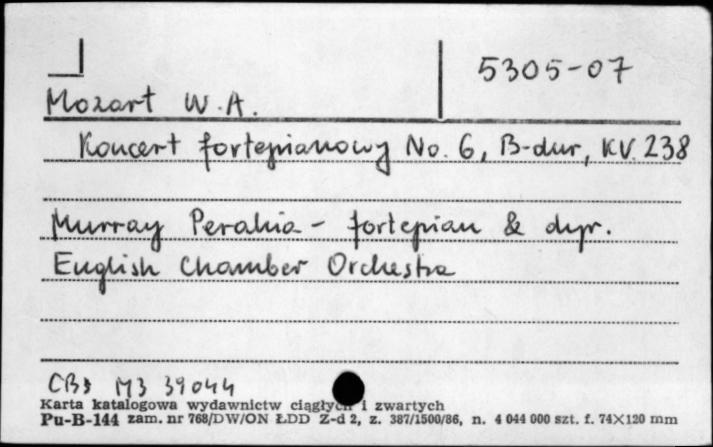 5305-07
Mozart W.A.
Koncert fortepianowy No. 6, B-dur, KV. 238
Murray Perahia - fortepian & dyr.
English Chamber Orchestra
CBS M3 39044
Karta katalogowa wydawnictw ciągłych i zwartych
Pu-B-144 zam. nr 768/DW/ON ŁDD Z-d 2, z. 387/1500/86, n. 4 044 000 szt. f. 74×120 mm